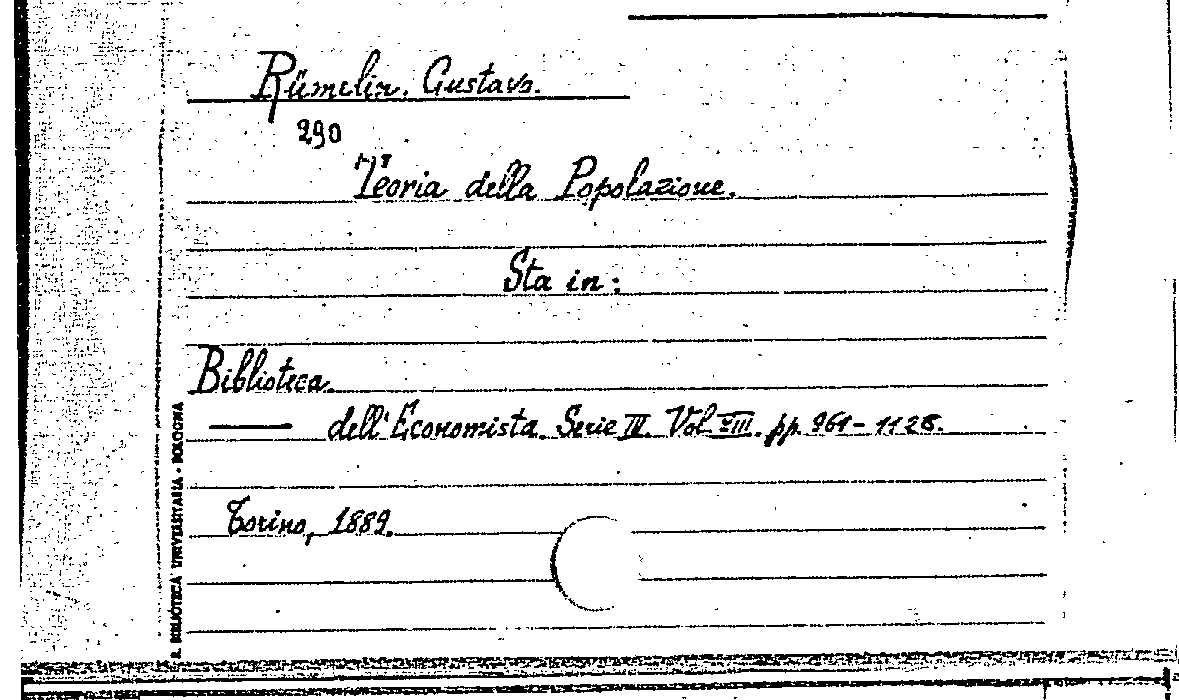 Rümelin. Gustavo.
290
Teoria della Popolazione.
Sta in:
Biblioteca
dell'Economista. Serie III. Vol. pp. 961-1128.
Torino, 1889.
R. BIBLIOTECA UNIVERSITARIA - BOLOGNA